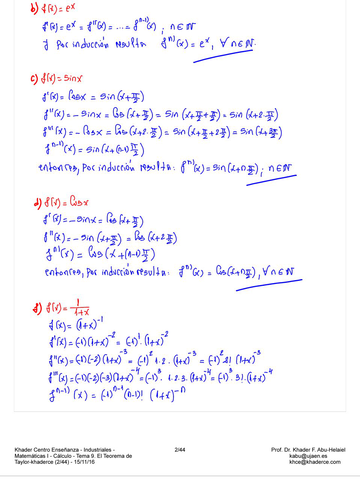 b) f(x) = e^x
f'(x) = e^x = f''(x) = .... = f^(n-1)(x) ; n∈ℕ
y por inducción resulta: f^n)(x) = e^x, ∀ n∈ℕ.
c) f(x) = sin x
f'(x) = Cos x = sin(x+π/2)
f''(x) = -sin x = Cos(x+π/2) = sin(x+π/2+π/2) = sin(x+2·π/2)
f'''(x) = -Cos x = Cos(x+2·π/2) = sin(x+π/2+2π/2) = sin(x+3π/2)
f^n-1)(x) = sin(x+(n-1)π/2)
entonces, por inducción resulta: f^n)(x) = sin(x+nπ/2), n∈ℕ
d) f(x) = Cos x
f'(x) = -sin x = Cos(x+π/2)
f''(x) = -sin(x+π/2) = Cos(x+2π/2)
f^n-1)(x) = Cos(x+(n-1)π/2)
entonces, por inducción resulta: f^n)(x) = Cos(x+nπ/2), ∀n∈ℕ
f) f(x) = 1/(1+x)
f(x) = (1+x)^-1
f'(x) = (-1)(1+x)^-2 = (-1)^1·(1+x)^-2
f''(x) = (-1)(-2)(1+x)^-3 = (-1)^2 1·2·(1+x)^-3 = (-1)^2·2!·(1+x)^-3
f'''(x) = (-1)(-2)(-3)(1+x)^-4 = (-1)^3·1·2·3·(1+x)^-4 = (-1)^3·3!·(1+x)^-4
f^n-1)(x) = (-1)^n-1 (n-1)! (1+x)^-n
Khader Centro Enseñanza - Industriales -
Matemáticas I - Cálculo - Tema 9. El Teorema de
Taylor-khaderce (2/44) - 15/11/16
2/44
Prof. Dr. Khader F. Abu-Helaiel
kabu@ujaen.es
khce@khaderce.com